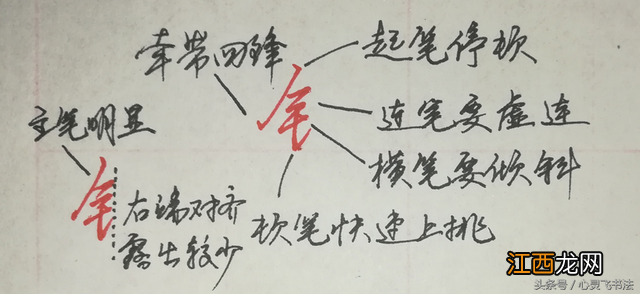 牵带回锋
起笔停顿
主笔明显
连笔要虚连
横笔要倾斜
右端对齐
露出较少
顿笔快速上挑
江西龙网
头条号 / 心灵飞书法